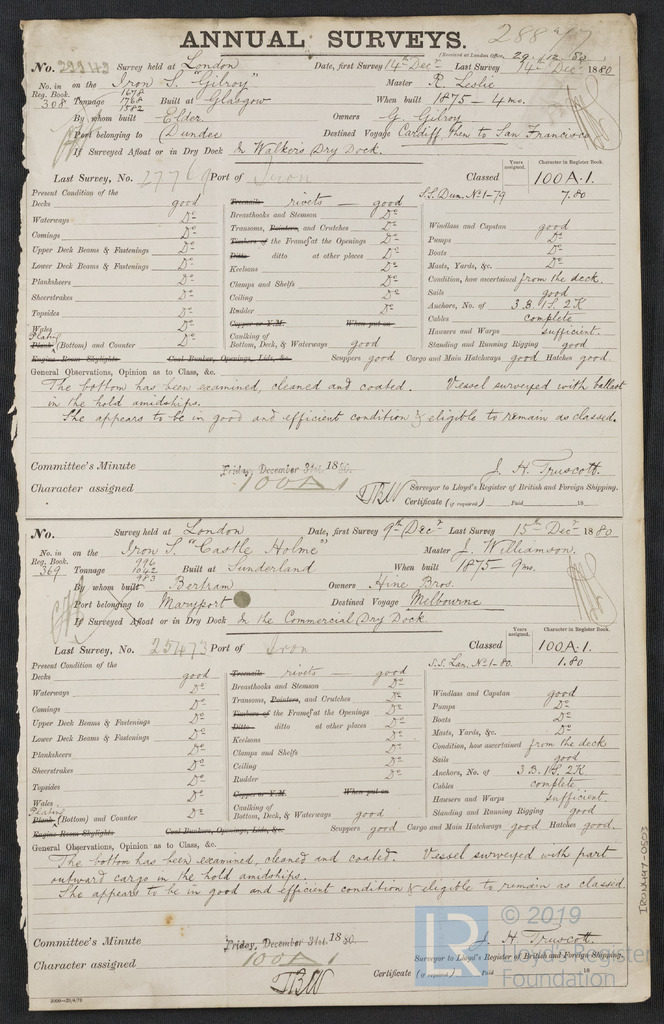 288
ANNUAL SURVEYS.
(Received at London Office, 29.12.80)
No. 22942 Survey held at London Date, first Survey 14th Decr Last Survey 14th Decr 1880
No. in Reg. Book. on the Iron S. "Gilroy" Master R. Leslie
1678
308 Tonnage 1768 Built at Glasgow When built 1875 - 4 mo.
1582
By whom built Elder Owners G. Gilroy
Port belonging to Dundee Destined Voyage Cardiff, then to San Francisco
If Surveyed Afloat or in Dry Dock In Walker's Dry Dock.
Years assigned. Character in Register Book.
Last Survey, No. Port of Iron Classed 100A.1.
Present Condition of the Treenails rivets - good S.S. Dun. No.1-79 7.80
Decks good Breasthooks and Stemson Do
Waterways Do Transoms, Pointers, and Crutches Do Windlass and Capstan good
Comings Do Timbers of the Frames at the Openings Do Pumps Do
Upper Deck Beams & Fastenings Do Ditto ditto at other places Do Boats Do
Lower Deck Beams & Fastenings Do Keelsons Do Masts, Yards, &c. Do
Planksheers Do Clamps and Shelfs Do Condition, how ascertained from the deck.
Sheerstrakes Do Ceiling Do Sails good
Topsides Do Rudder Do Anchors, No. of 3 B. 1 S. 2 K
Wales Do Copper or Y.M. When put on Cables complete
Plating Plank (Bottom) and Counter Do Caulking of Bottom, Deck, & Waterways good Hawsers and Warps sufficient.
Standing and Running Rigging good
Engine Room Skylights Coal Bunker, Openings, Lids, &c. Scuppers good Cargo and Main Hatchways good Hatches good.
General Observations, Opinion as to Class, &c.
The bottom has been examined, cleaned and coated. Vessel surveyed with ballast
in the hold amidships.
She appears to be in good and efficient condition & eligible to remain as classed.
Committee's Minute Friday, December 31st. 1880. J. H. Truscott.
Character assigned 100A1 Surveyor to Lloyd's Register of British and Foreign Shipping.
Certificate (if required) Paid 18
No. Survey held at London Date, first Survey 9th Decr Last Survey 15th Decr 1880
No. in Reg. Book. on the Iron S. "Castle Holme" Master J. Williamson.
996
369 Tonnage 1042 Built at Sunderland When built 1875 - 9 mo.
983
By whom built Bertram Owners Hine Bros.
Port belonging to Maryport Destined Voyage Melbourne
If Surveyed Afloat or in Dry Dock In the Commercial Dry Dock.
Years assigned. Character in Register Book.
Last Survey, No. 25473 Port of Iron Classed 100A.1.
Present Condition of the Treenails rivets - good S.S. Lon. No.1-80. 1.80
Decks good Breasthooks and Stemson Do
Waterways Do Transoms, Pointers, and Crutches Do Windlass and Capstan good
Comings Do Timbers of the Frames at the Openings Do Pumps Do
Upper Deck Beams & Fastenings Do Ditto ditto at other places Do Boats Do
Lower Deck Beams & Fastenings Do Keelsons Do Masts, Yards, &c. Do
Planksheers Do Clamps and Shelfs Do Condition, how ascertained from the deck
Sheerstrakes Do Ceiling Do Sails good
Topsides Do Rudder Do Anchors, No. of 3 B. 1 S. 2 K
Wales Do Copper or Y.M. When put on Cables complete
Plating Plank (Bottom) and Counter Do Caulking of Bottom, Deck, & Waterways good Hawsers and Warps sufficient.
Standing and Running Rigging good
Engine Room Skylights Coal Bunkers, Openings, Lids, &c. Scuppers good Cargo and Main Hatchways good Hatches good.
General Observations, Opinion as to Class, &c.
The bottom has been examined, cleaned and coated. Vessel surveyed with part
outward cargo in the hold amidships.
She appears to be in good and efficient condition & eligible to remain as classed.
Committee's Minute Friday, December 31st. 1880. J. H. Truscott.
Character assigned 100A1 Surveyor to Lloyd's Register of British and Foreign Shipping.
Certificate (if required) Paid 18
2000-23/4/79
IRON497-0503
LR © 2019
Lloyd's Register
Foundation